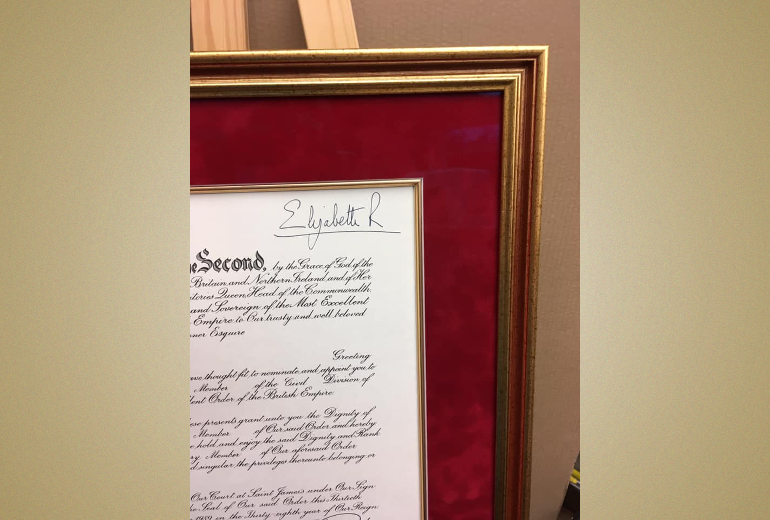 Elizabeth R
Second, by the Grace of God, of the
Britain and Northern Ireland and of Her
Queen, Head of the Commonwealth,
and Sovereign of the Most Excellent
Empire to Our trusty and well beloved
Esquire
Greeting
thought fit to nominate and appoint you to
Member of the Civil Division of
Order of the British Empire
presents grant unto you the Dignity of
Member of Our said Order and hereby
hold and enjoy the said Dignity and Rank
Member of Our aforesaid Order
singular the privileges thereunto belonging or
Our Court at Saint James's under Our Sign
the Seal of Our said Order this Thirtieth
1989 in the Thirty-eighth year of Our Reign